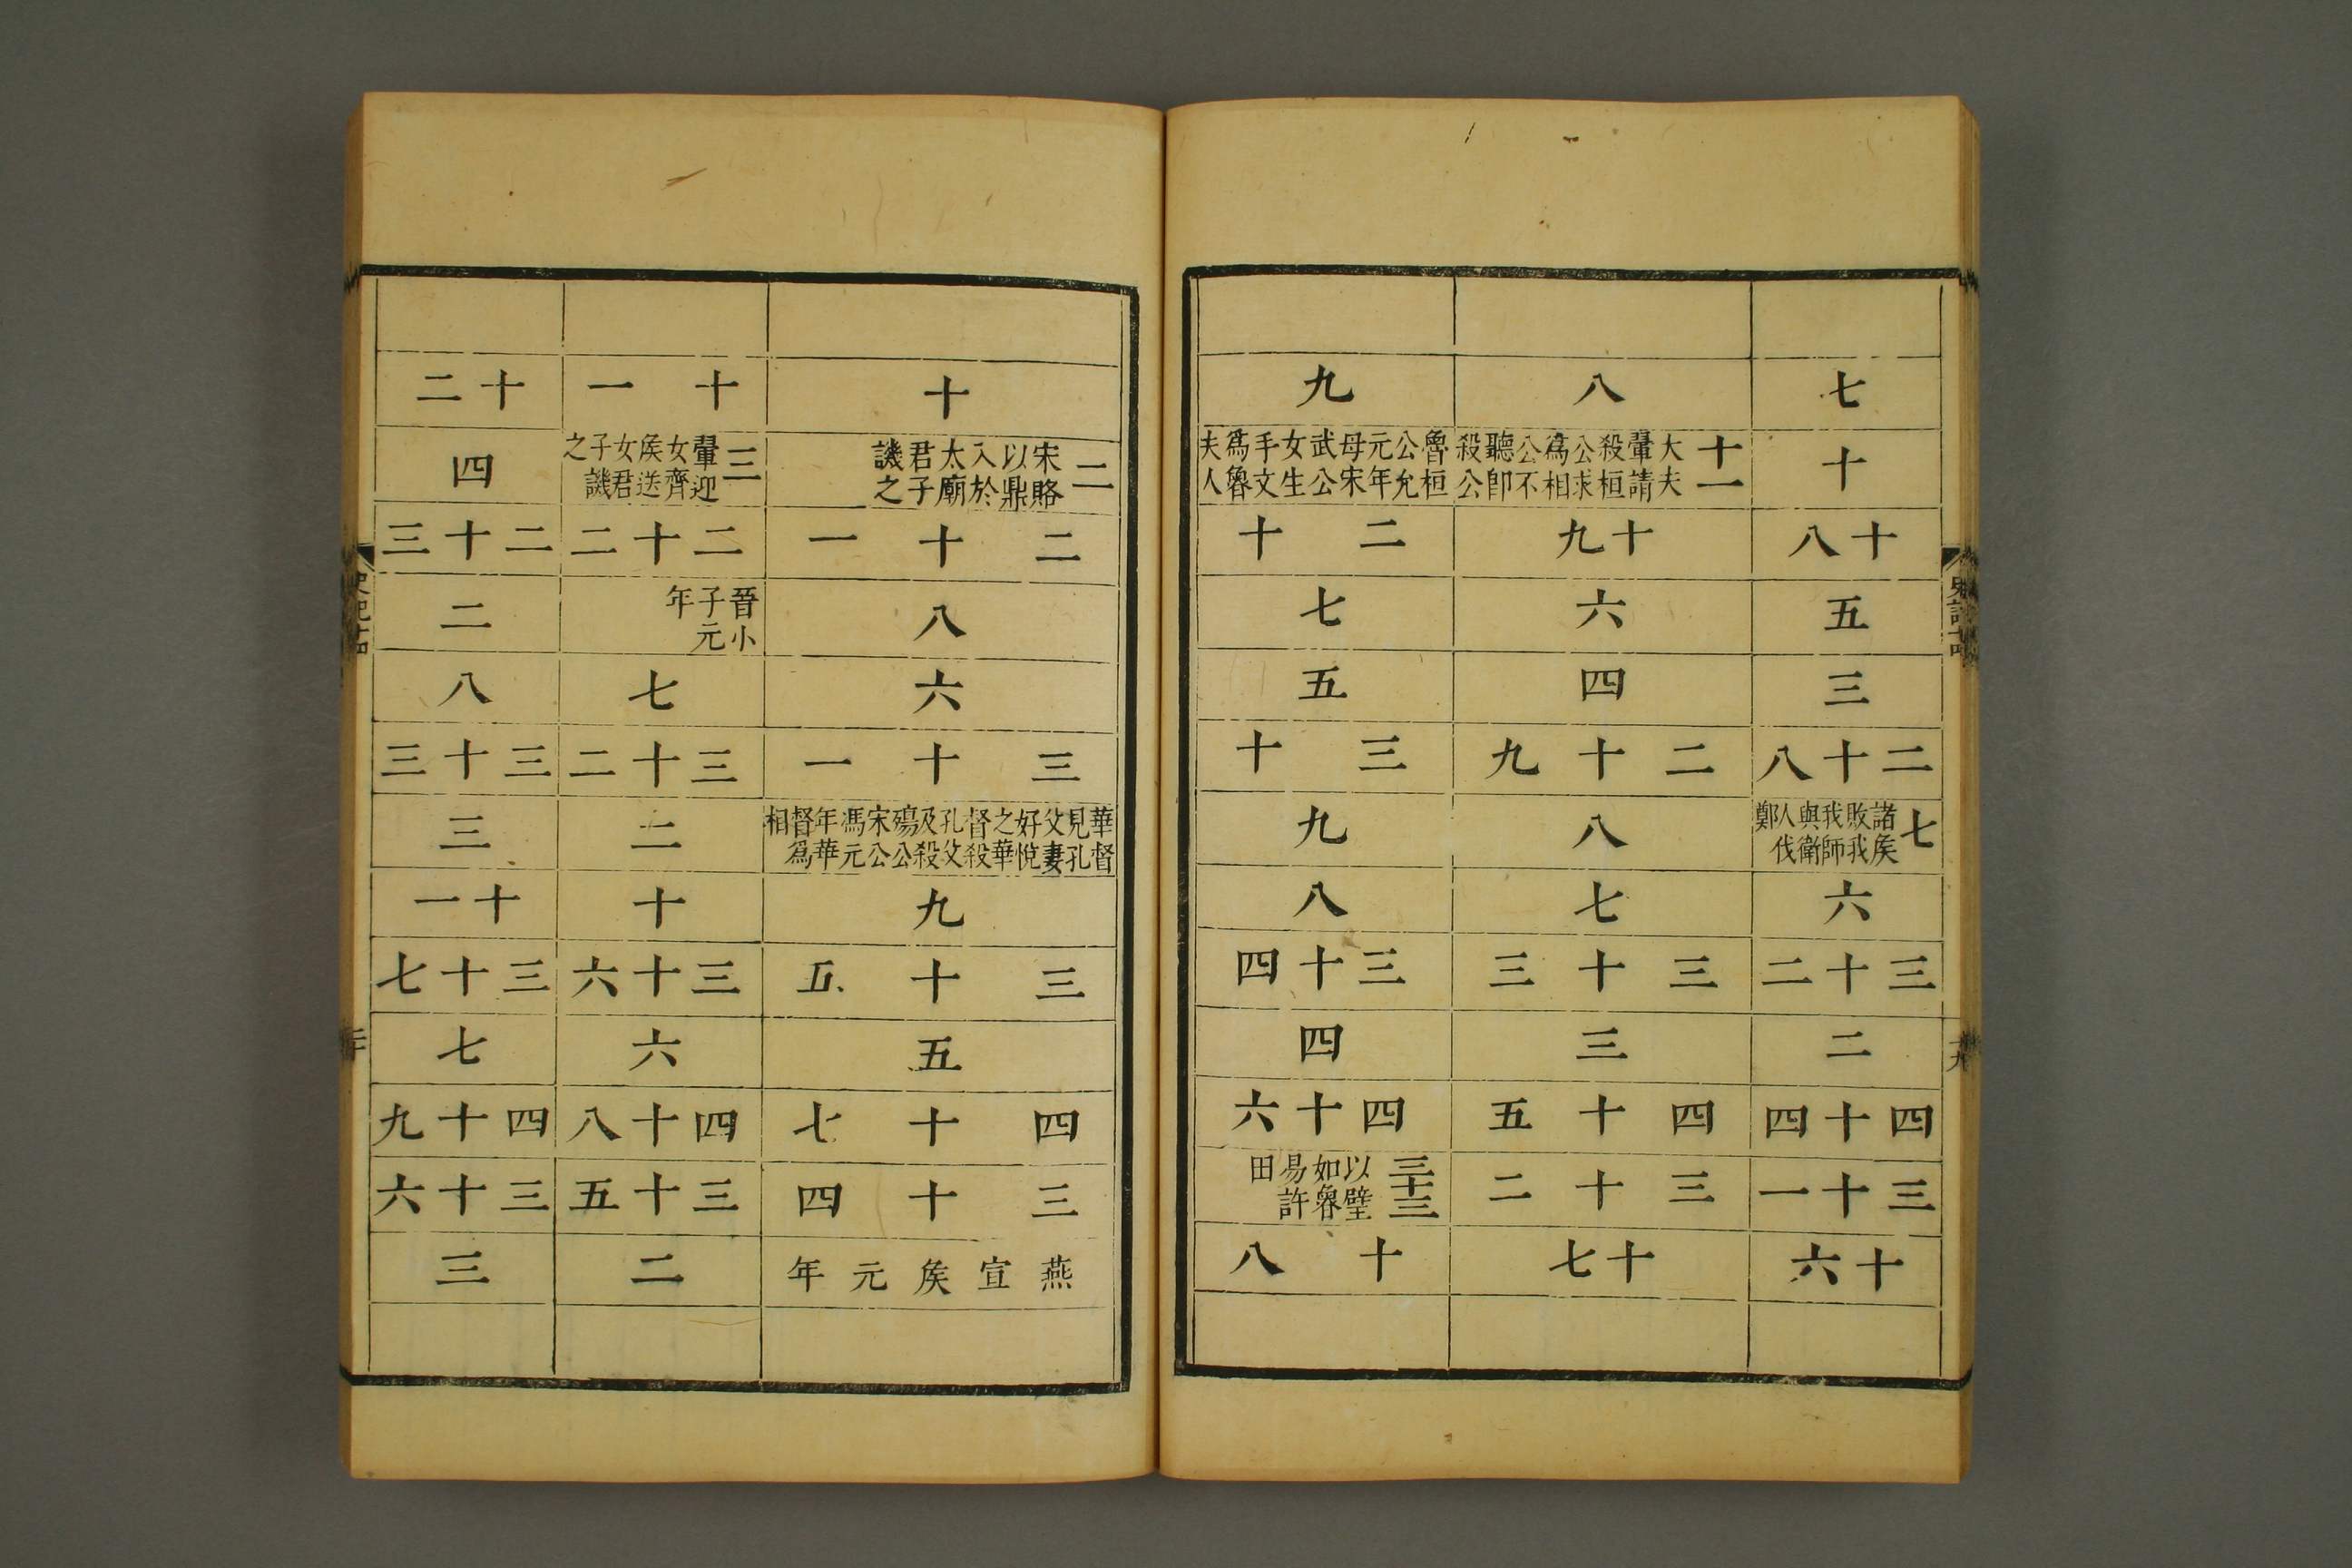 史記十四
十九
七
十
十八
五
三
二十八
七
諸矦敗我我師與衛人伐鄭
六
三十二
二
四十四
三十一
十六
八
十一
大夫翬請殺桓公求爲相公不聽卽殺公
十九
六
四
二十九
八
七
三十三
三
四十五
三十二
十七
九
魯桓公允元年母宋武公女生手文爲魯夫人
二十
七
五
三十
九
八
三十四
四
四十六
三十三
以璧如魯易許田
十八
十
二
宋賂以鼎入於太廟君子譏之
二十一
八
六
三十一
華督見孔父妻好悅之華督殺孔父及殺殤公宋公馮元年華督爲相
九
三十五
五
四十七
三十四
燕宣矦元年
十一
三
翬迎女齊矦送女君子譏之
二十二
晉小子元年
七
三十二
二
十
三十六
六
四十八
三十五
二
十二
四
二十三
二
八
三十三
三
十一
三十七
七
四十九
三十六
三
史記十四
二十